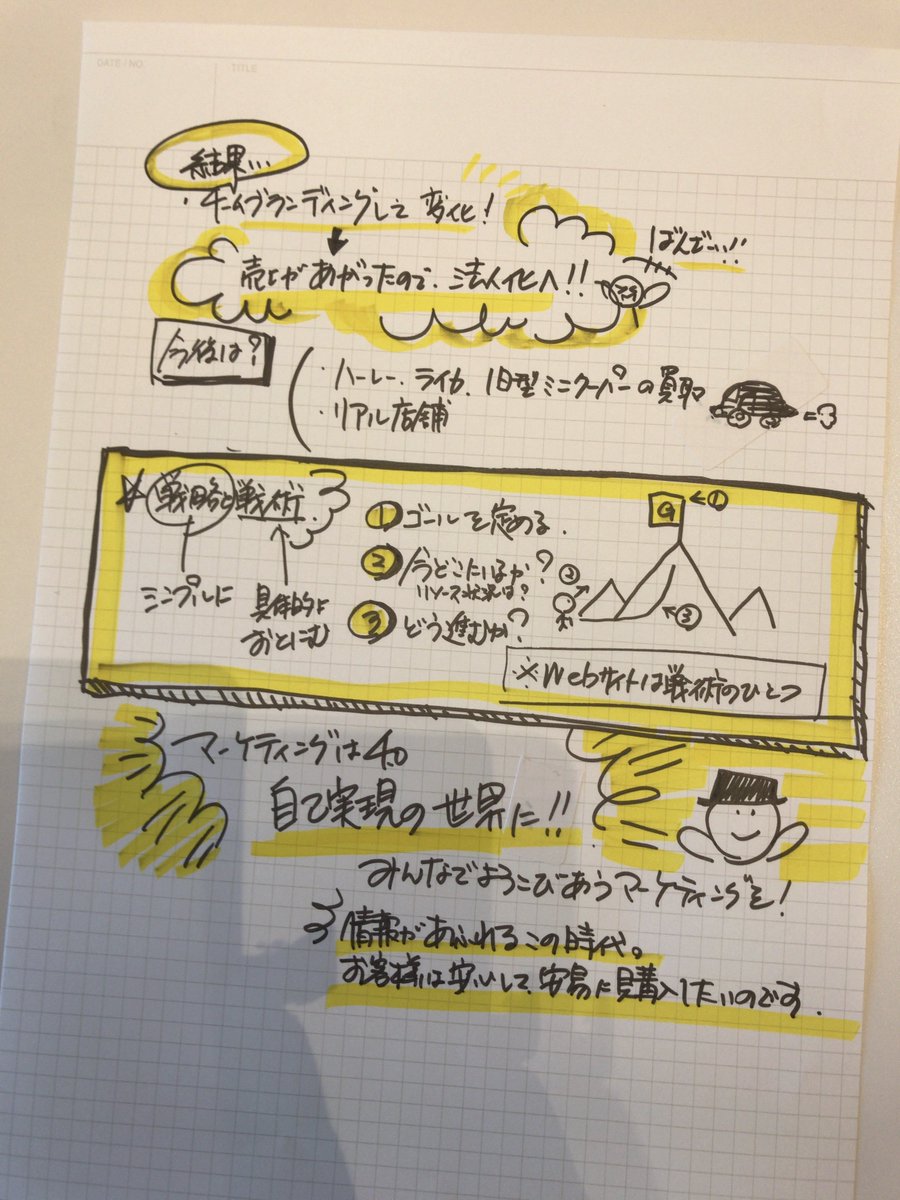 DATE / NO.
TITLE
結果…
・チームブランディングして変化!
売上があがったので、法人化へ!!
ばんざーい!!
今後は?
・ハーレー、ライカ、旧型ミニクーパーの買取
・リアル店舗
戦略と戦術
シンプルに
具体的に
おとしこむ
① ゴールを定める.
② 今どこにいるか?
リソース状況は?
③ どう進むか?
G ←①
②
③
※Webサイトは戦術のひとつ
マーケティングは4.0
自己実現の世界に!!
みんなでよろこびあうマーケティングを!
情報があふれるこの時代。
お客様は安心して、安易に購入したいのです.